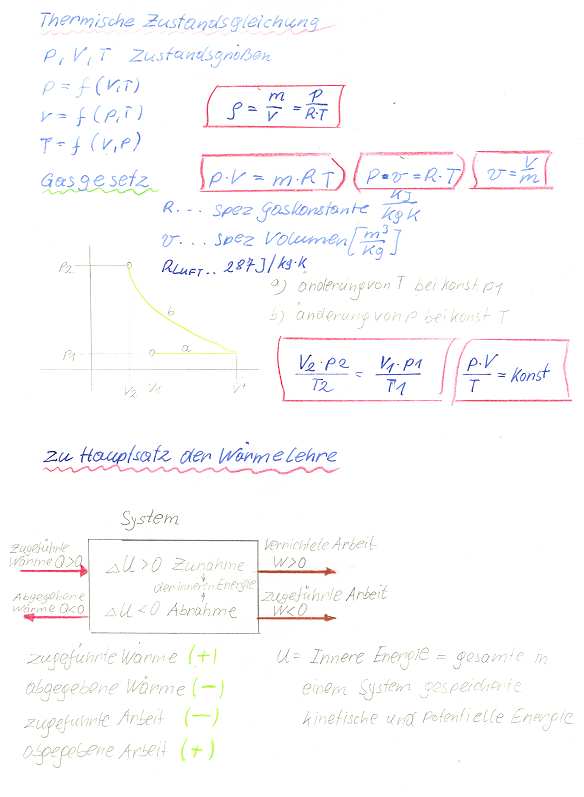 Thermische Zustandsgleichung
P, V, T Zustandsgrößen
p = f (V,T)
v = f (p,T)
T = f (V,P)
ρ = m/V = p/R·T
Gasgesetz
p·V = m·R T
p·v = R·T
v = V/m
R... spez Gaskonstante KJ/kg K
v... spez Volumen [m³/Kg]
R LUFT .. 287 J/kg·K
a) änderung von T bei konst p1
b) änderung von p bei konst T
P2
P1
b
a
V2 V1 V'
V2·p2/T2 = V1·p1/T1
p·V/T = konst
zu Hauptsatz der Wärmelehre
System
zugeführte Wärme Q>0
Abgegebene Wärme Q<0
ΔU>0 Zunahme
der inneren Energie
ΔU<0 Abnahme
Verrichtete Arbeit
W>0
zugeführte Arbeit
W<0
zugeführte Wärme (+)
abgegebene Wärme (-)
zugeführte Arbeit (-)
abgegebene Arbeit (+)
U = Innere Energie = gesamte in
einem System gespeicherte
kinetische und Potentielle Energie